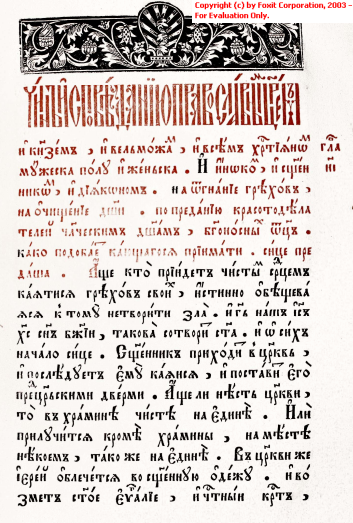 Copyright (c) by Foxit Corporation, 2003 -
For Evaluation Only.
и҆ кнѧзе́мъ , и҆ вельмо́жаⷨ , и҆ всѣ́мъ хрⷭ҇тїѧ́нѡⷨ гла
мꙋ́жеска по́лꙋ и҆ же́ньска . и҆ и҆́нокѡⷨ , и҆ сщ҃е́н
никѡⷨ , и҆ дїѧ́кѡномъ . на ѡ҆гна́нїе грѣхо́въ ,
на ѡ҆чище́нїе дш҃и . по преда́нїю красотодѣ́ла
телей чл҃ческимъ дш҃а́мъ , бг҃оно́сныⷯ ѻ҆ц҃ъ .
ка́ко подоба́еⷮ ка́ющагосѧ прїима́ти . си́це пре
да́ша . А҆́ще кто̀ прїи́детъ чи́стыⷨ срⷣцемъ
ка́ѧтисѧ грѣхо́въ свои́ⷯ , и҆́стинно ѡ҆бѣщева́
ѧсѧ к томꙋ̀ нетвори́ти зла̀ . и҆ гь҃ на́шъ і҆с҃ъ
хс҃ сн҃ъ бж҃їй , такова̀ сотвори́ⷮ ст҃а . и҆ ѡ҆ си́хъ
нача́ло си́це . Сщ҃е́нникъ прихо́диⷮ в цр҃ковь ,
и҆ послѣ́дꙋетъ є҆мꙋ̀ ка́ѧйсѧ , и҆ поста́виⷮ є҆го̀
преⷣ цр҃ьскими две́рми . А҆́ще ли нѣ́сть цр҃кви ,
то̀ въ хра́минѣ чи́стѣ на є҆ди́нѣ . И҆лѝ
прилꙋчи́тсѧ кромѣ̀ хра́мины , на мѣ́стѣ
нѣ́коемъ , та́ко же на є҆ди́нѣ . Въ цр҃кви же
і҆ере́й ѡ҆блече́тсѧ во сщ҃е́ннꙋю ѻ҆де́жꙋ . и҆ во́
зметъ ст҃о́е є҆ѵⷢ҇лїе , и҆ чтⷭ҇ны́й крⷭ҇тъ ,